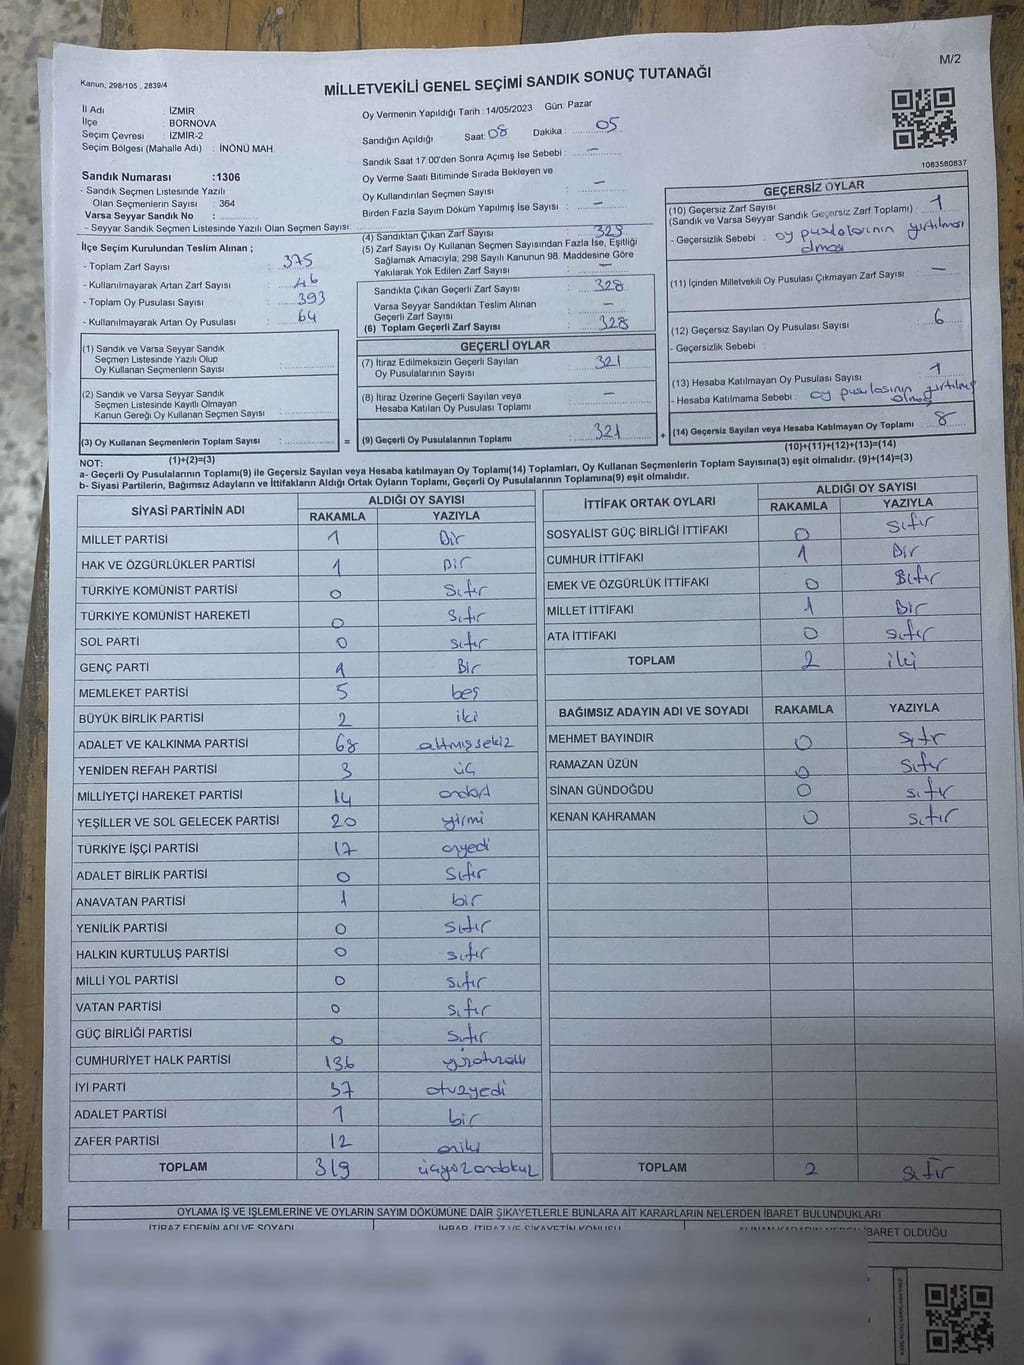 Kanun, 298/105 , 2839/4
MİLLETVEKİLİ GENEL SEÇİMİ SANDIK SONUÇ TUTANAĞI
M/2
İl Adı : İZMİR
İlçe : BORNOVA
Seçim Çevresi : İZMİR-2
Seçim Bölgesi (Mahalle Adı) : İNÖNÜ MAH.
Oy Vermenin Yapıldığı Tarih : 14/05/2023 Gün: Pazar
Sandığın Açıldığı Saat: 08 Dakika : 05
Sandık Saat 17.00'den Sonra Açımış İse Sebebi : —
Oy Verme Saati Bitiminde Sırada Bekleyen ve
Oy Kullandırılan Seçmen Sayısı : —
Birden Fazla Sayım Döküm Yapılmış İse Sayısı : —
1083580837
Sandık Numarası :1306
- Sandık Seçmen Listesinde Yazılı
Olan Seçmenlerin Sayısı : 364
Varsa Seyyar Sandık No :
- Seyyar Sandık Seçmen Listesinde Yazılı Olan Seçmen Sayısı:
İlçe Seçim Kurulundan Teslim Alınan ;
- Toplam Zarf Sayısı : 375
- Kullanılmayarak Artan Zarf Sayısı : 46
- Toplam Oy Pusulası Sayısı : 393
- Kullanılmayarak Artan Oy Pusulası : 64
(1) Sandık ve Varsa Seyyar Sandık
Seçmen Listesinde Yazılı Olup
Oy Kullanan Seçmenlerin Sayısı :
(2) Sandık ve Varsa Seyyar Sandık
Seçmen Listesinde Kayıtlı Olmayan
Kanun Gereği Oy Kullanan Seçmen Sayısı :
(3) Oy Kullanan Seçmenlerin Toplam Sayısı : =
(1)+(2)=(3)
(4) Sandıktan Çıkan Zarf Sayısı : 329
(5) Zarf Sayısı Oy Kullanan Seçmen Sayısından Fazla İse, Eşitliği
Sağlamak Amacıyla; 298 Sayılı Kanunun 98. Maddesine Göre
Yakılarak Yok Edilen Zarf Sayısı : —
Sandıkta Çıkan Geçerli Zarf Sayısı : 328
Varsa Seyyar Sandıktan Teslim Alınan
Geçerli Zarf Sayısı : —
(6) Toplam Geçerli Zarf Sayısı : 328
GEÇERLİ OYLAR
(7) İtiraz Edilmeksizin Geçerli Sayılan
Oy Pusulalarının Sayısı : 321
(8) İtiraz Üzerine Geçerli Sayılan veya
Hesaba Katılan Oy Pusulası Toplamı : —
(9) Geçerli Oy Pusulalarının Toplamı : 321 +
GEÇERSİZ OYLAR
(10) Geçersiz Zarf Sayısı
(Sandık ve Varsa Seyyar Sandık Geçersiz Zarf Toplamı) : 1
- Geçersizlik Sebebi : oy pusulalarının yırtılması
olması
(11) İçinden Milletvekili Oy Pusulası Çıkmayan Zarf Sayısı : —
(12) Geçersiz Sayılan Oy Pusulası Sayısı : 6
- Geçersizlik Sebebi :
(13) Hesaba Katılmayan Oy Pusulası Sayısı : 1
- Hesaba Katılmama Sebebi : oy pusulasının yırtılmış
olması
(14) Geçersiz Sayılan veya Hesaba Katılmayan Oy Toplamı : 8
(10)+(11)+(12)+(13)=(14)
NOT:
a- Geçerli Oy Pusulalarının Toplamı(9) ile Geçersiz Sayılan veya Hesaba katılmayan Oy Toplam(14) Toplamları, Oy Kullanan Seçmenlerin Toplam Sayısına(3) eşit olmalıdır. (9)+(14)=(3)
b- Siyasi Partilerin, Bağımsız Adayların ve İttifakların Aldığı Ortak Oyların Toplamı, Geçerli Oy Pusulalarının Toplamına(9) eşit olmalıdır.
SİYASİ PARTİNİN ADI ALDIĞI OY SAYISI
RAKAMLA YAZIYLA
MİLLET PARTİSİ 1 Bir
HAK VE ÖZGÜRLÜKLER PARTİSİ 1 Bir
TÜRKİYE KOMÜNİST PARTİSİ 0 Sıfır
TÜRKİYE KOMÜNİST HAREKETİ 0 Sıfır
SOL PARTİ 0 sıfır
GENÇ PARTİ 1 Bir
MEMLEKET PARTİSİ 5 beş
BÜYÜK BİRLİK PARTİSİ 2 iki
ADALET VE KALKINMA PARTİSİ 68 altmışsekiz
YENİDEN REFAH PARTİSİ 3 üç
MİLLİYETÇİ HAREKET PARTİSİ 14 ondört
YEŞİLLER VE SOL GELECEK PARTİSİ 20 yirmi
TÜRKİYE İŞÇİ PARTİSİ 17 onyedi
ADALET BİRLİK PARTİSİ 0 Sıfır
ANAVATAN PARTİSİ 1 bir
YENİLİK PARTİSİ 0 sıfır
HALKIN KURTULUŞ PARTİSİ 0 sıfır
MİLLİ YOL PARTİSİ 0 sıfır
VATAN PARTİSİ 0 sıfır
GÜÇ BİRLİĞİ PARTİSİ 0 sıfır
CUMHURİYET HALK PARTİSİ 136 yüzotuzaltı
İYİ PARTİ 37 otuzyedi
ADALET PARTİSİ 1 bir
ZAFER PARTİSİ 12 oniki
TOPLAM 319 üçyüzondokuz
İTTİFAK ORTAK OYLARI ALDIĞI OY SAYISI
RAKAMLA YAZIYLA
SOSYALİST GÜÇ BİRLİĞİ İTTİFAKI 0 sıfır
CUMHUR İTTİFAKI 1 Bir
EMEK VE ÖZGÜRLÜK İTTİFAKI 0 Sıfır
MİLLET İTTİFAKI 1 Bir
ATA İTTİFAKI 0 sıfır
TOPLAM 2 iki
BAĞIMSIZ ADAYIN ADI VE SOYADI RAKAMLA YAZIYLA
MEHMET BAYINDIR 0 sıfır
RAMAZAN ÜZÜN 0 sıfır
SİNAN GÜNDOĞDU 0 sıfır
KENAN KAHRAMAN 0 sıfır
TOPLAM 2 sıfır
OYLAMA İŞ VE İŞLEMLERİNE VE OYLARIN SAYIM DÖKÜMÜNE DAİR ŞİKAYETLERLE BUNLARA AİT KARARLARIN NELERDEN İBARET BULUNDUKLARI
İTİRAZ EDENİN ADI VE SOYADI İHBAR, İTİRAZ VE ŞİKAYETİN KONUSU ALINAN KARARIN NEDEN İBARET OLDUĞU